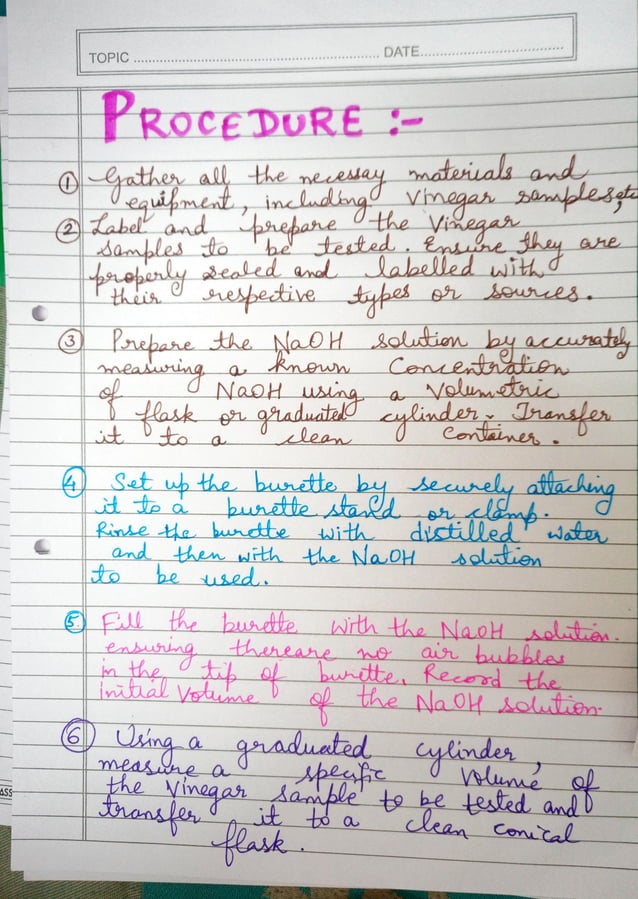 TOPIC ........ DATE........
PROCEDURE :-
① Gather all the necessay materials and
equipment, including vinegar samples, etc
② Label and prepare the Vinegar
samples to be tested. Ensure they are
properly sealed and labelled with
their respective types or sources.
③ Prepare the NaOH solution by accurately
measuring a known Concentration
of NaOH using a Volumetric
flask or graduated cylinder. Transfer
it to a clean Container.
④ Set up the burette by securely attaching
it to a burette stand or clamp.
Rinse the burette with distilled water
and then with the NaOH solution
to be used.
⑤. Fill the burette with the NaOH solution.
ensuring thereare no air bubbles
in the tip of burette. Record the
initial Volume of the NaOH solution.
⑥ Using a graduated cylinder,
measure a specific Volume of
the Vinegar sample to be tested and
transfer it to a clean conical
flask.
ASS